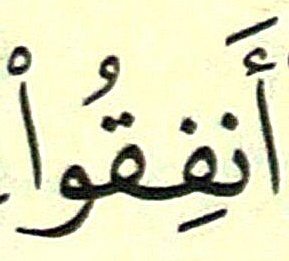 أَنفِقُواْ